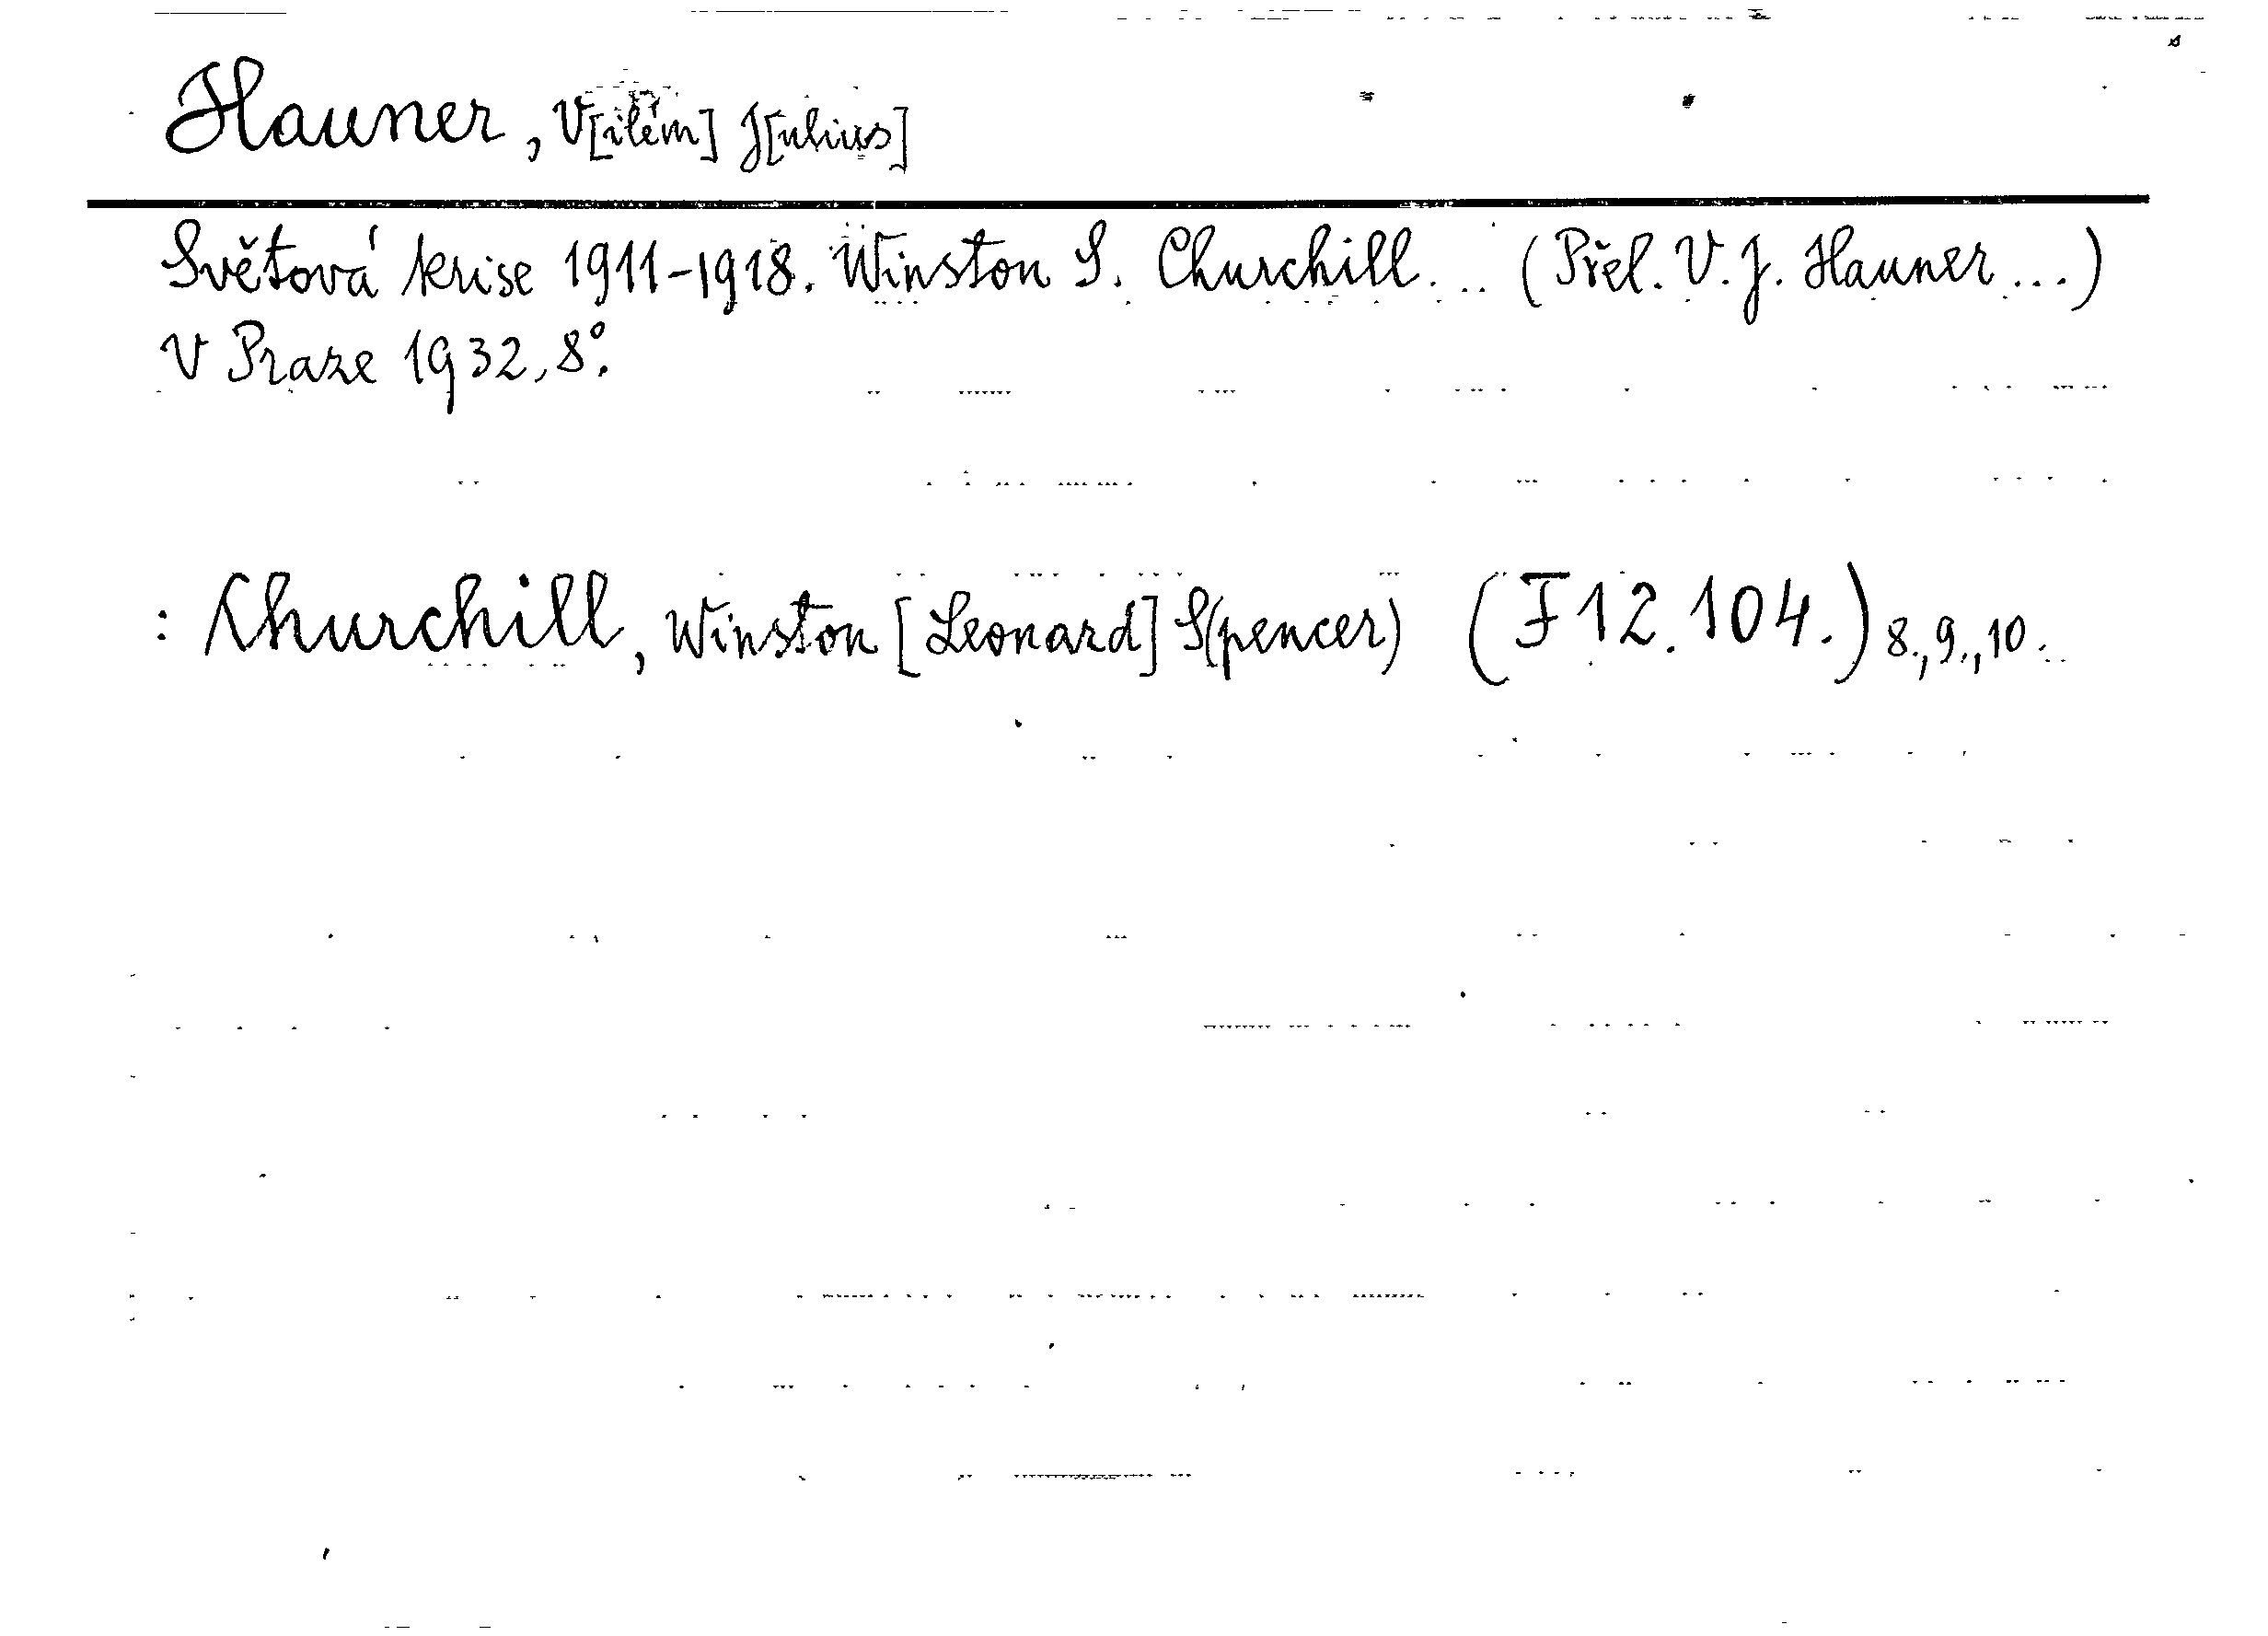 Hauner, V[ilém] J[ulius]
Světová krise 1911-1918. Winston S. Churchill... (Přel. V. J. Hauner...)
V Praze 1932, 8°.
: Churchill, Winston [Leonard] S(pencer) (F 12.104.) 8., 9., 10.